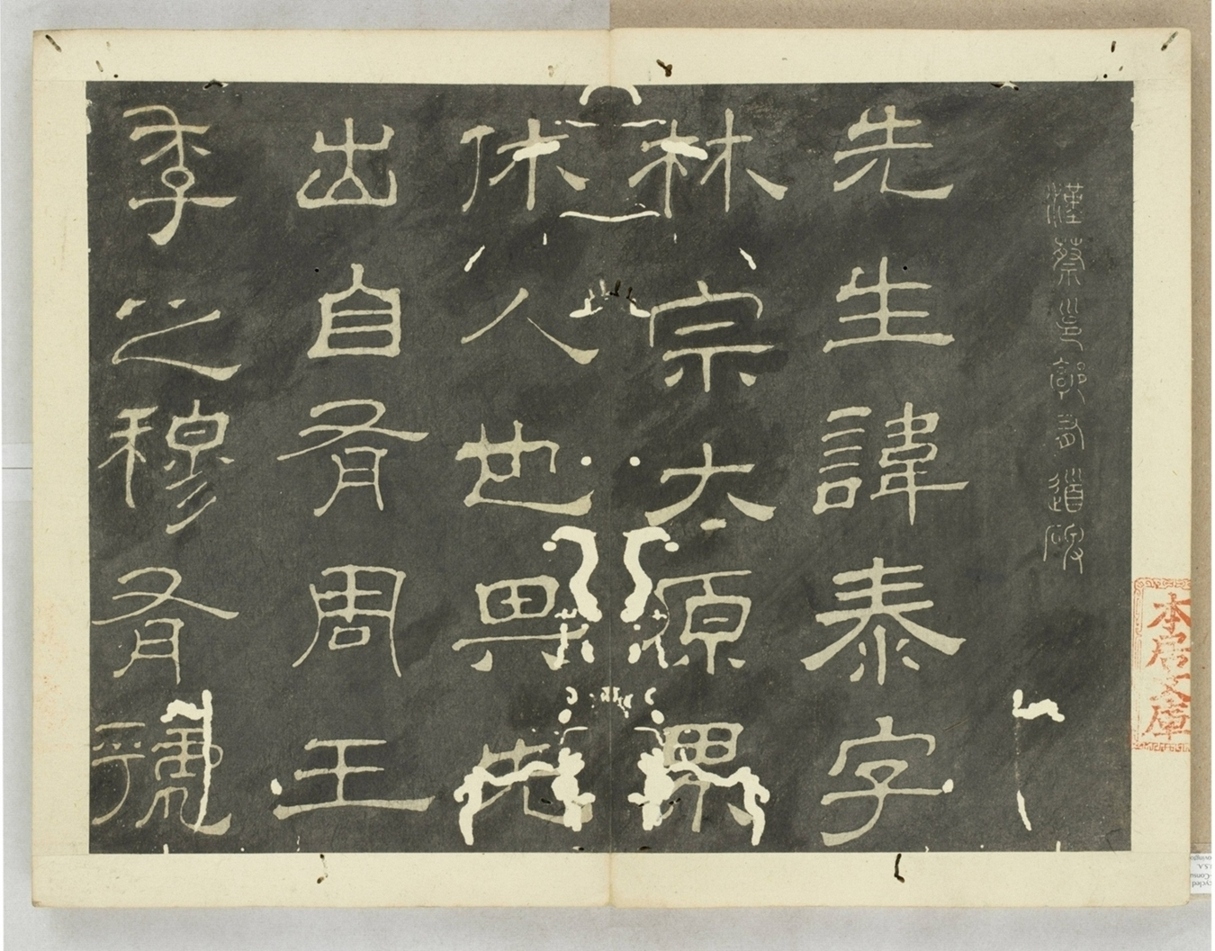 漢蔡邕郭有道碑
先生諱泰字
林宗太原界
休人也其先
出自有周王
季之穆有虢
本居文庫